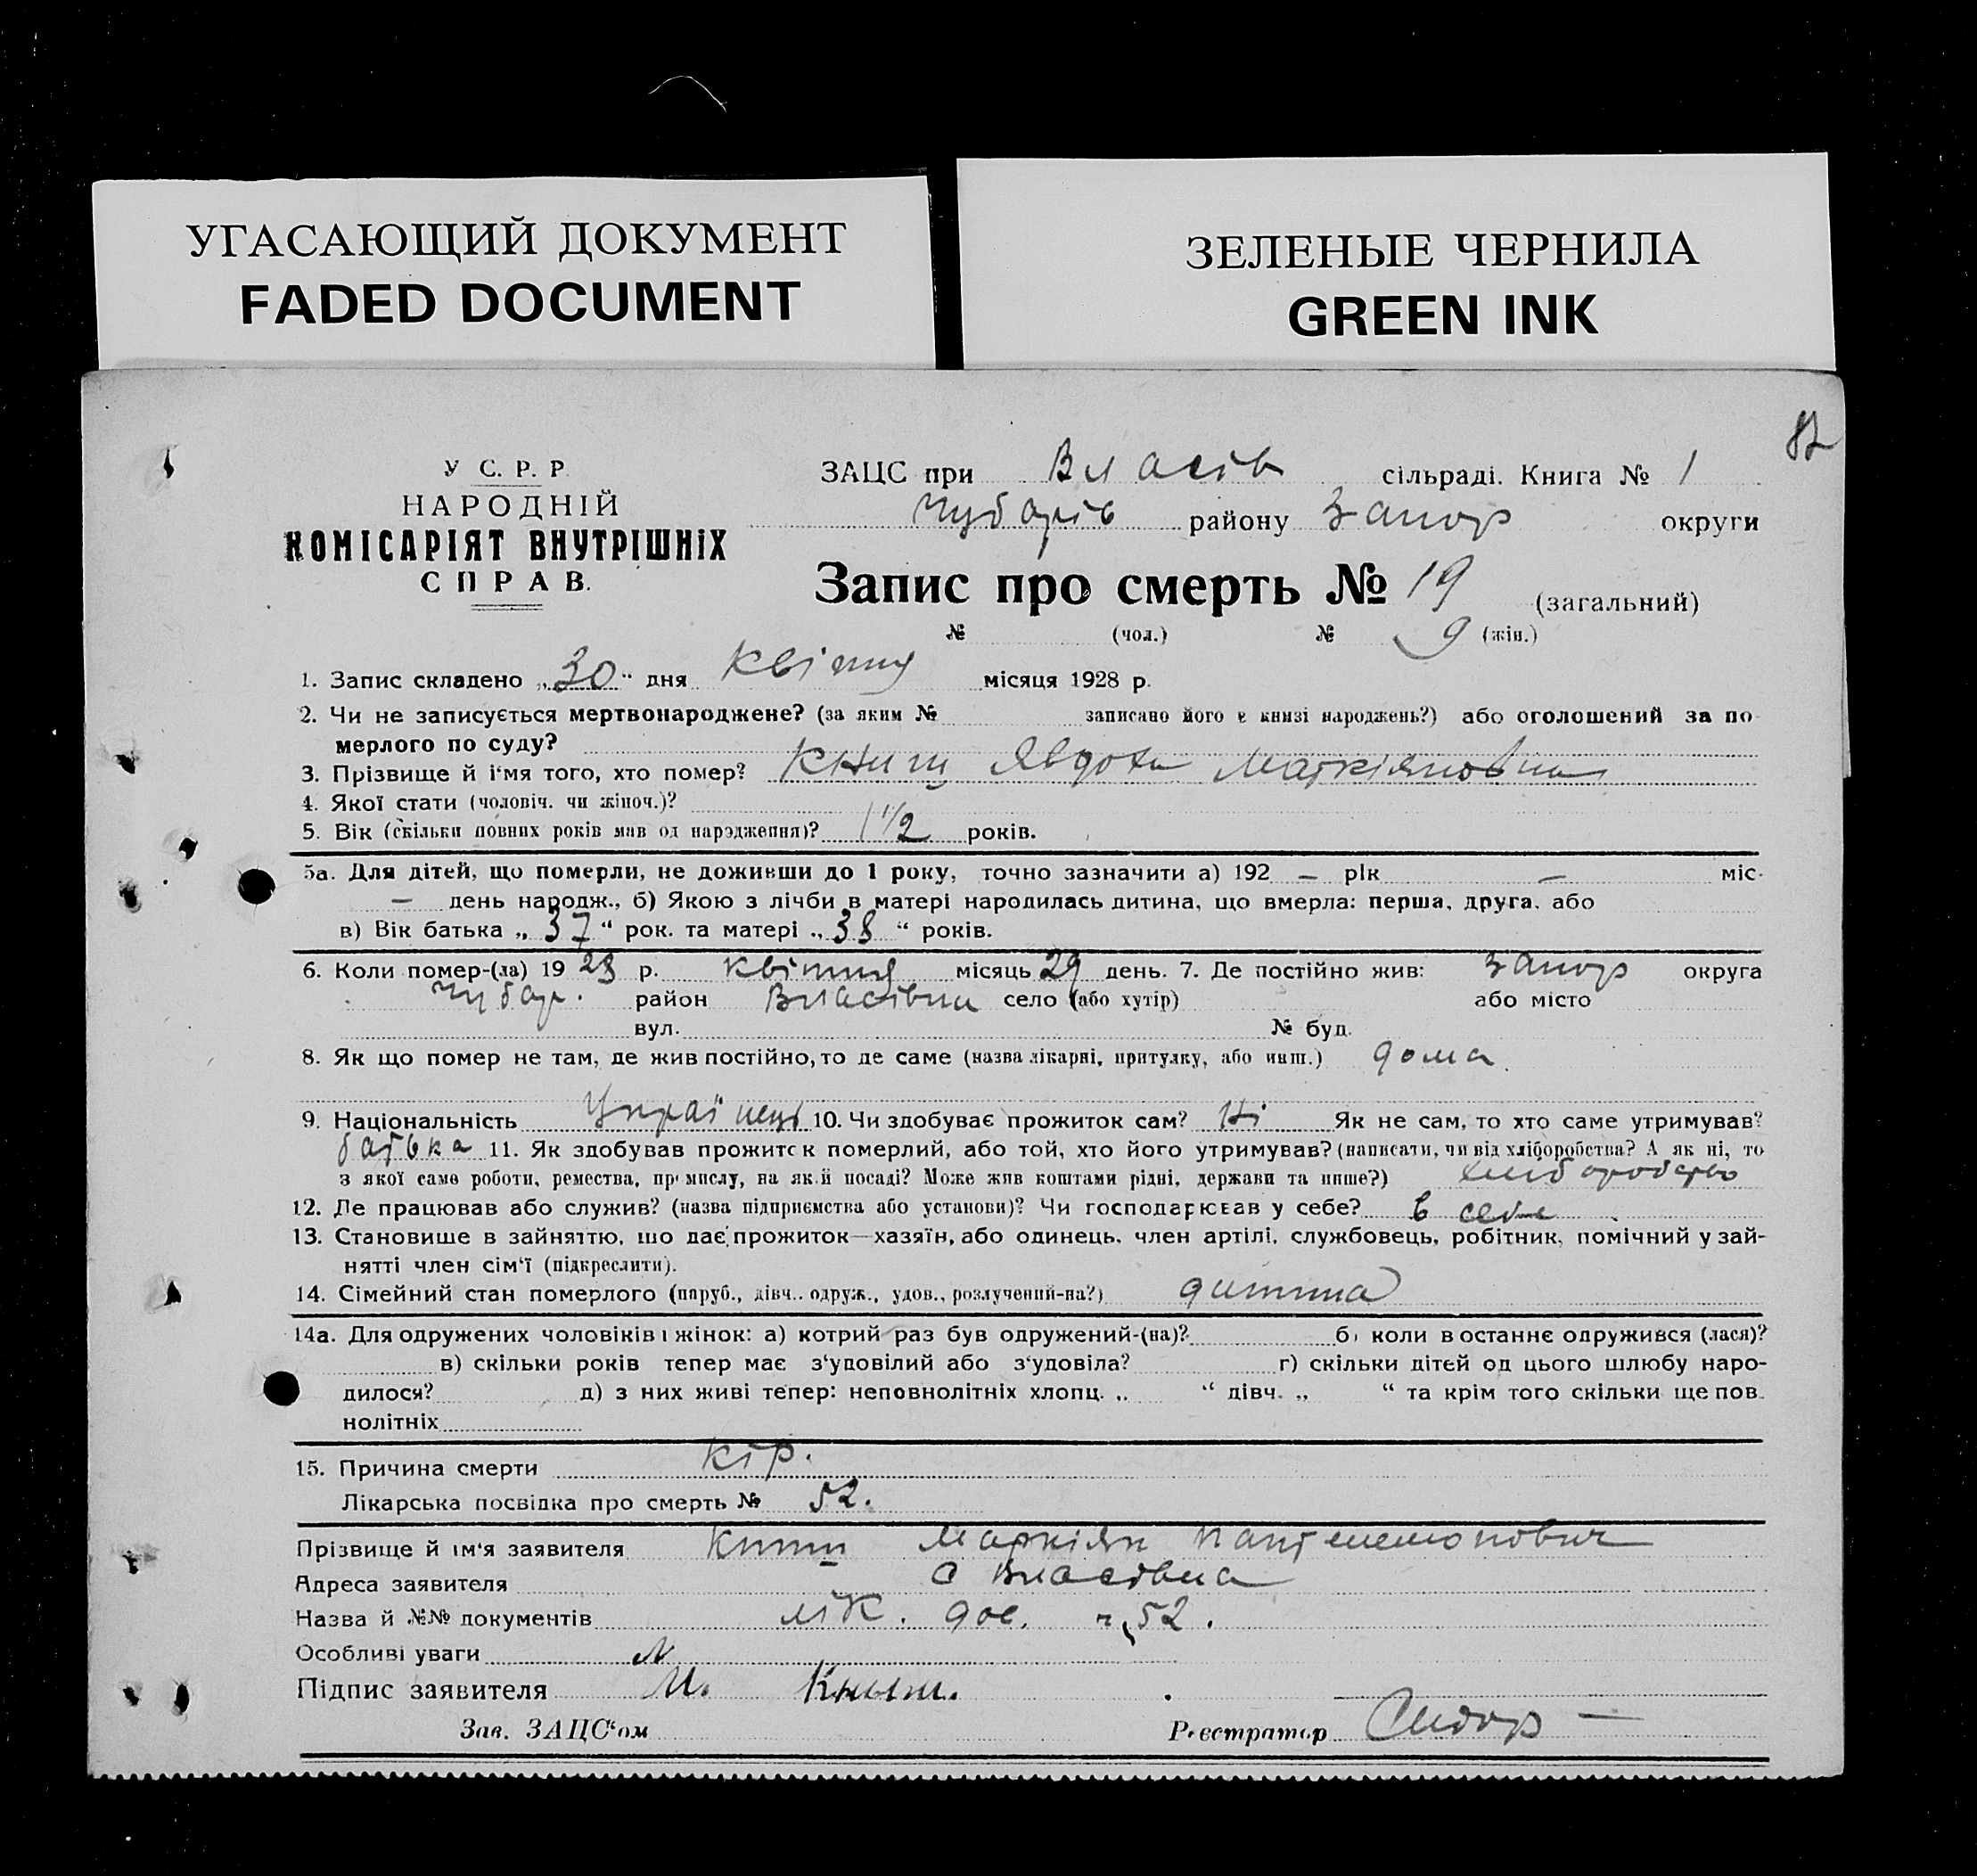 УГАСАЮЩИЙ ДОКУМЕНТ
FADED DOCUMENT
ЗЕЛЕНЫЕ ЧЕРНИЛА
GREEN INK
У С. Р. Р
НАРОДНІЙ
КОМІСАРІЯТ ВНУТРІШНІХ
СПРАВ.
ЗАЦС при Власів сільраді. Книга № 1
Чубарів району Запор округи
Запис про смерть № 19 (загальний)
№ (чол.) № 9 (жін.)
1. Запис складено „30" дня квітня місяця 1928 р.
2. Чи не записується мертвонароджене? (за яким № записано його в книзі народжень?) або оголошений за по
мерлого по суду?
3. Прізвище й і'мя того, хто помер? Книш Явдоха Маркіяновна
4. Якої стати (чоловіч. чи жіноч.)?
5. Вік (скільки повних років мав од народження)? 1 1/2 років.
5а. Для дітей, що померли, не доживши до 1 року, точно зазначити а) 192 — рік — міс.
— день народж., б) Якою з лічби в матері народилась дитина, що вмерла: перша, друга, або
в) Вік батька „37" рок. та матері „38" років.
6. Коли помер-(ла) 1928 р. квітня місяць 29 день. 7. Де постійно жив: Запор округа
Чубар. район Власівка село (або хутір) або місто
вул. № буд.
8. Як що помер не там, де жив постійно, то де саме (назва лікарні, притулку, або инш.) дома.
9. Національність Українець 10. Чи здобуває прожиток сам? Ні Як не сам, то хто саме утримував?
батька 11. Як здобував прожиток померлий, або той, хто його утримував? (написати, чи від хліборобства? А як ні, то
з якої саме роботи, ремества, промислу, на якій посаді? Може жив коштами рідні, держави та инше?) хліборобство
12. Де працював або служив? (назва підприємства або установи)? Чи господарював у себе? в себе
13. Становище в зайняттю, що дає прожиток—хазяїн, або одинець, член артілі, службовець, робітник, помічний у зай-
нятті член сім'ї (підкреслити).
14. Сімейний стан померлого (паруб., дівч., одруж., удов., розлучений-на?) дитина
14а. Для одружених чоловіків і жінок: а) котрий раз був одружений-(на)? б) коли в останнє одружився (лася)?
в) скільки років тепер має з'удовілий або з'удовіла? г) скільки дітей од цього шлюбу наро-
дилося? д) з них живі тепер: неповнолітніх хлопц. „ " дівч. „ " та крім того скільки ще пов.
нолітніх
15. Причина смерти кір.
Лікарська посвідка про смерть № 52.
Прізвище й ім'я заявителя Книш Маркіян Пантелемонович
Адреса заявителя с Власівка
Назва й №№ документів лік. дов. ч. 52.
Особливі уваги
Підпис заявителя М. Кныш.
Зав. ЗАЦС'ом Реєстратор Сидор